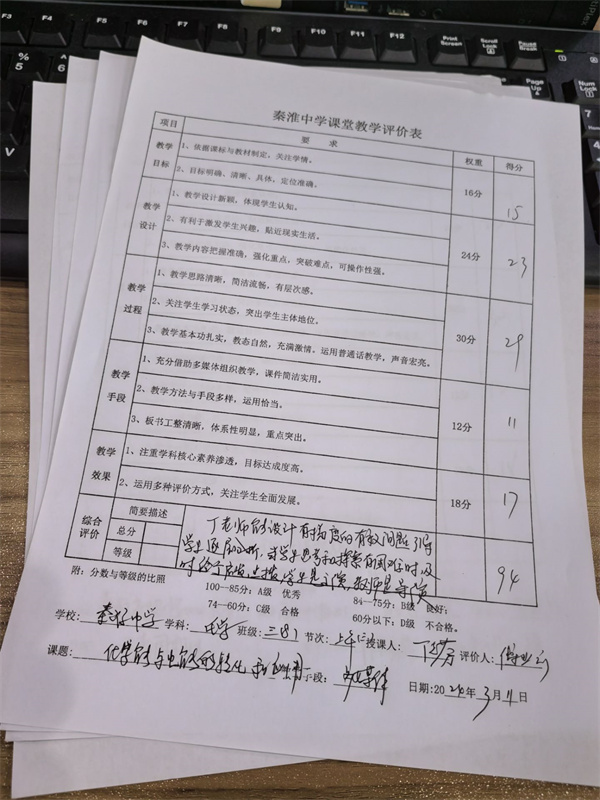 F3 F4 F5 F6 F7 F8 F9 F10 F11 F12 Print Screen Scroll Lock Pause Break
% 5 6 Page Up Num Lock
V 7
秦淮中学课堂教学评价表
项目 要 求 权重 得分
教学目标 1、依据课标与教材制定，关注学情。 16分 15
2、目标明确、清晰、具体，定位准确。
教学设计 1、教学设计新颖，体现学生认知。 24分 23
2、有利于激发学生兴趣，贴近现实生活。
3、教学内容把握准确，强化重点，突破难点，可操作性强。
教学过程 1、教学思路清晰，简洁流畅，有层次感。 30分 29
2、关注学生学习状态，突出学生主体地位。
3、教学基本功扎实，教态自然，充满激情。运用普通话教学，声音宏亮。
教学手段 1、充分借助多媒体组织教学，课件简洁实用。 12分 11
2、教学方法与手段多样，运用恰当。
3、板书工整清晰，体系性明显，重点突出。
教学效果 1、注重学科核心素养渗透，目标达成度高。 18分 17
2、运用多种评价方式，关注学生全面发展。
综合评价 简要描述 丁老师能设计有梯度的有效问题，引导
总分 学生逐层分析，对学生思考和探索有困难时，及 94
等级 时给予启发、点拨，学生是主演，教师是导演
附：分数与等级的比照
100--85分：A级 优秀 84--75分：B级 良好；
74--60分：C级 合格 60分以下：D级 不合格。
学校：秦淮中学 学科：化学 班级：节次：上午 授课人：丁 评价人：
课题：化学能与电能的转化 手段： 日期:20 年3月11日